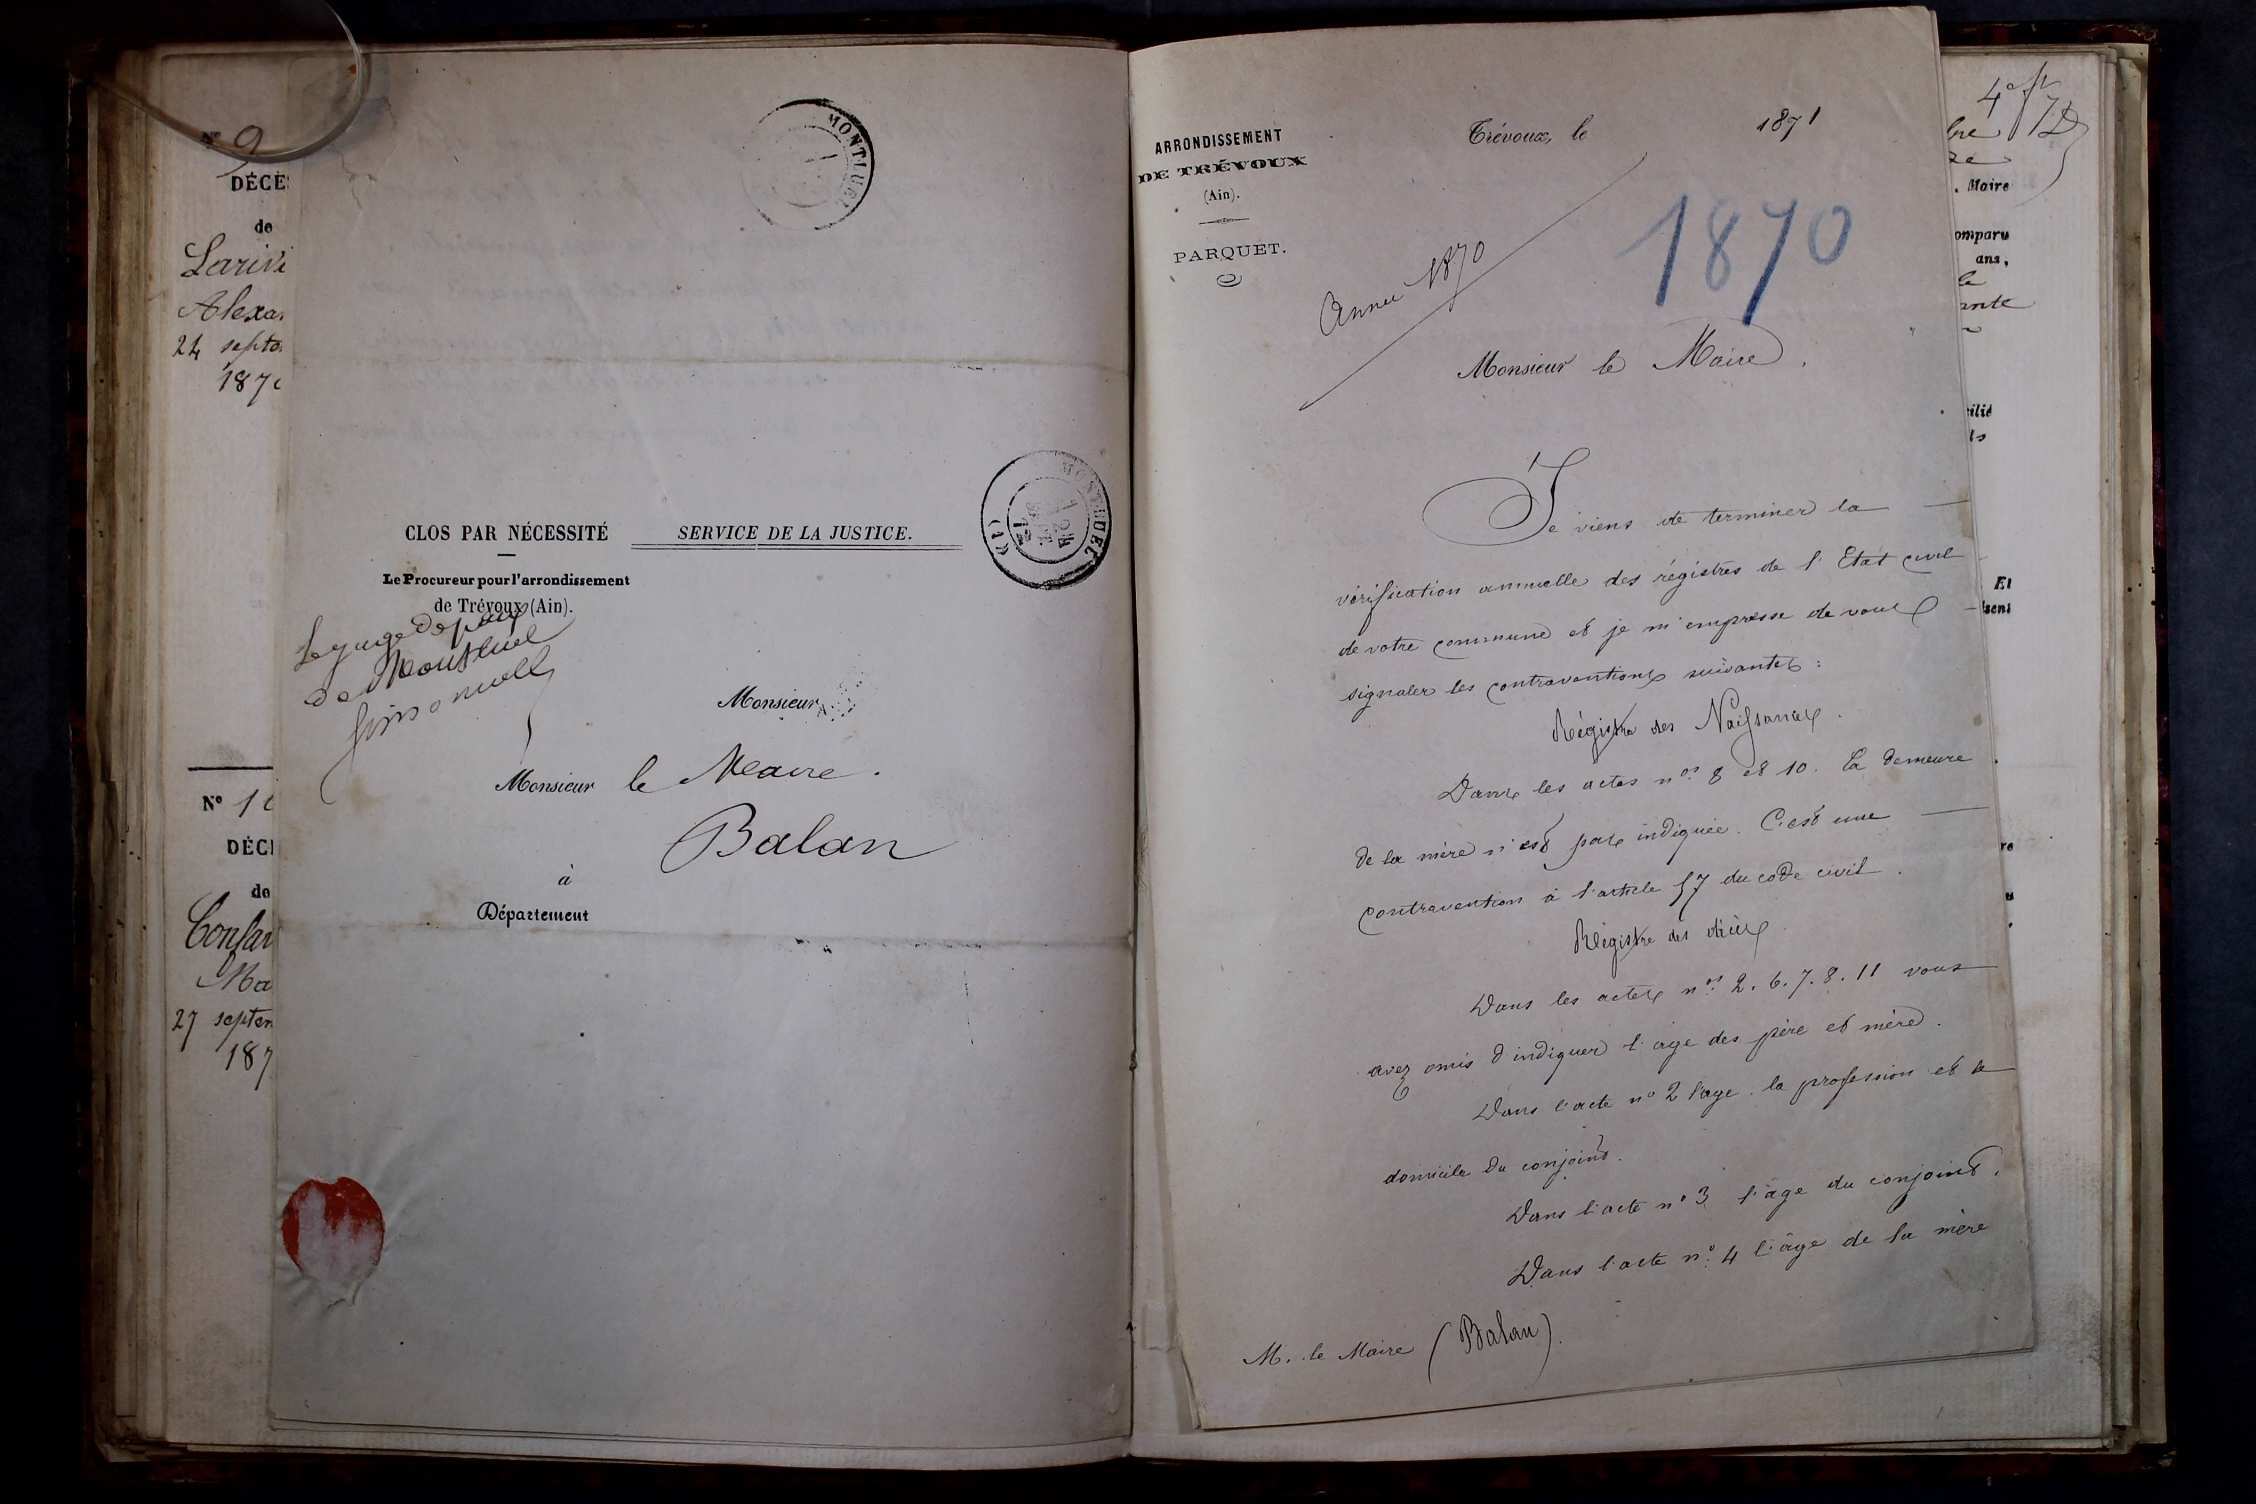 N° 9
DÉCÈ
de
Larivi
Alexa
24 septe
187
N° 1
DÉCÈ
de
Confar
Ma
27 septem
187
MONTLUEL
MONTLUEL
(1)
CLOS PAR NÉCESSITÉ
SERVICE DE LA JUSTICE.
Le Procureur pour l'arrondissement
de Trévoux (Ain).
Le juge de paix
de Montluel
Monsieur
Monsieur le Maire.
Balan
à
Département
ARRONDISSEMENT
DE TRÉVOUX
(Ain).
PARQUET.
Trévoux, le 1871
Année 1870
1870
Monsieur le Maire.
Je viens de terminer la
vérification annuelle des régistres de l'Etat civil
de votre commune et je m'empresse de vous
signaler les contraventions suivantes :
Régistre des Naissances.
Dans les actes nos 8 et 10. La demeure
de la mère n'est pas indiquée. C'est une
contravention à l'article 57 du code civil.
Régistre des décès
Dans les actes nos 2. 6. 7. 8. 11 vous
avez omis d'indiquer l'age des père et mère.
Dans l'acte n° 2 l'age. la profession et le
domicile du conjoint.
Dans l'acte n° 3 l'âge du conjoint.
Dans l'acte n° 4 l'âge de la mère
M. le Maire (Balan).
. Maire
omparu
ans,
le
ante
ilié
ls
Et
sent
re